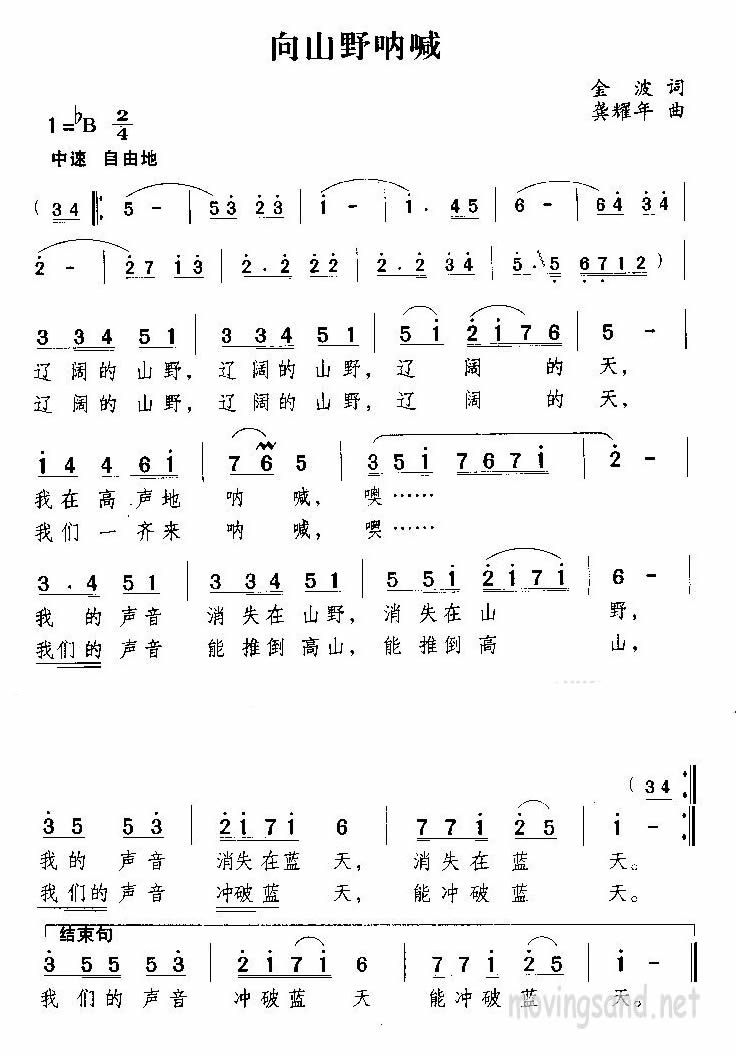 向山野呐喊
金 波 词
龚耀年 曲
1=♭B 2/4
中速 自由地
( 3 4 ‖: 5 - | 5 3̇ 2̇ 3̇ | 1̇ - | 1̇ . 4 5 | 6 - | 6 4̇ 3̇ 4̇ |
2̇ - | 2̇ 7 1̇ 3̇ | 2̇ . 2̇ 2̇ 2̇ | 3̇ . 2̇ 3̇ 4̇ | 5̇ 5 6 7 1 2 ) |
3 3 4 5 1 | 3 3 4 5 1 | 5 1̇ 2̇ 1̇ 7 6 | 5 - |
辽 阔的 山野, 辽 阔的 山野, 辽 阔 的 天,
辽 阔的 山野, 辽 阔的 山野, 辽 阔 的 天,
1̇ 4 4 6 1̇ | 7 6 5 | 3̇ 5 1̇ 7 6 7 1̇ | 2̇ - |
我 在 高 声地 呐 喊, 噢……
我们 一 齐来 呐 喊, 噢……
3 . 4 5 1 | 3 3 4 5 1 | 5 5 1̇ 2̇ 1̇ 7 1̇ | 6 - |
我 的 声音 消 失在 山野, 消 失在 山 野,
我们的 声音 能 推倒 高山, 能 推倒 高 山,
( 3 4 :‖
3̇ 5 5 3̇ | 2̇ 1̇ 7 1̇ 6 | 7 7 1̇ 2̇ 5 | 1̇ - :‖
我 的 声音 消失在蓝 天, 消失在 蓝 天。
我们的 声音 冲破蓝 天, 能冲破 蓝 天。
结束句
3̇ 5 5 5 3̇ | 2̇ 1̇ 7 1̇ 6 | 2̇ 2̇ 3̇ 2̇ 5 | 1̇ - ‖
我 们的 声音 冲破蓝 天 能冲破 蓝 天。
movingsand.net